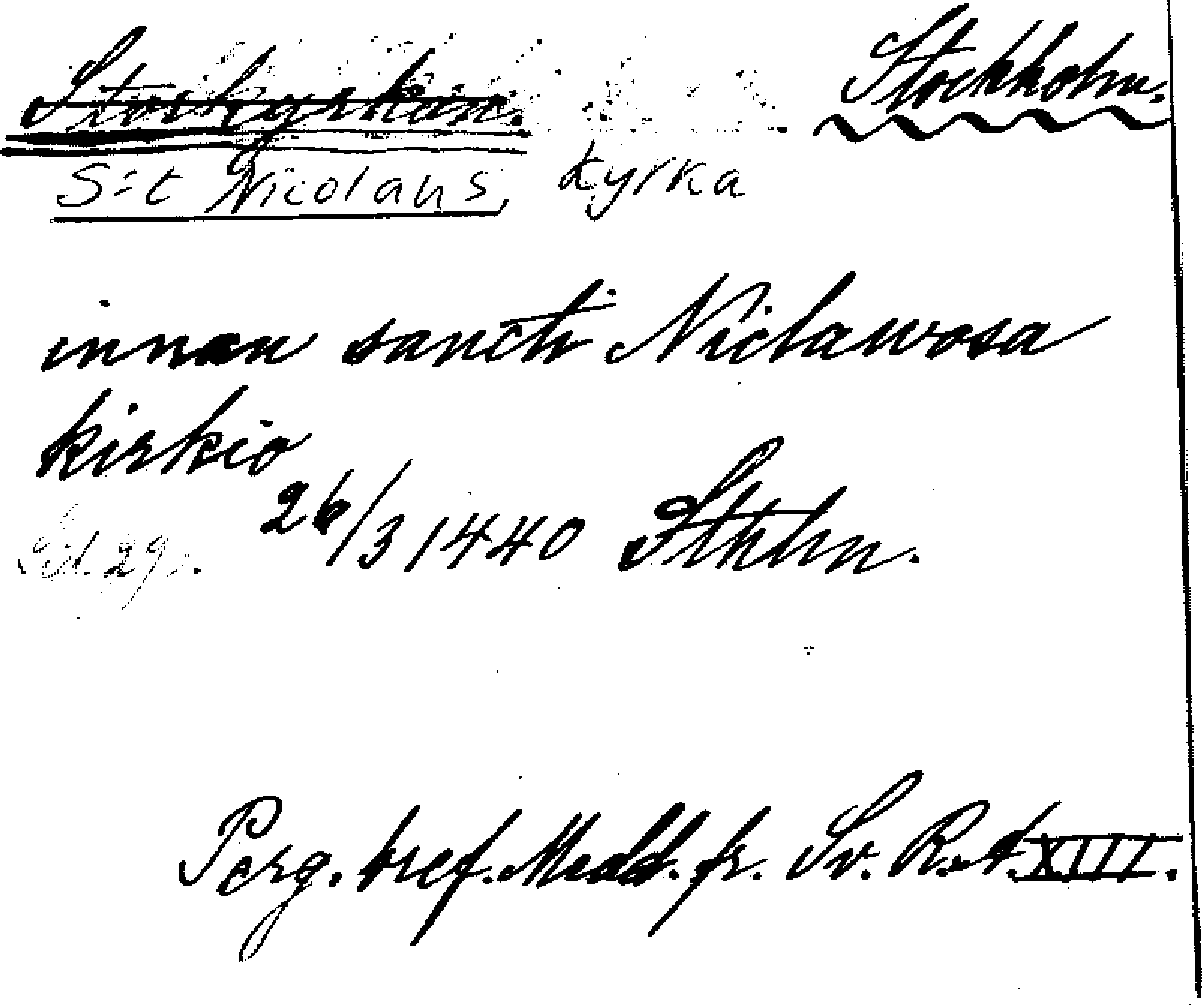 Storkyrkan. Stockholm.
S:t Nicolaus, kyrka
innan sancti Niclawosa
kirkio
26/3 1440 Sthlm.
Perg. bref. Medd. fr. Sv. R. A. XIII.